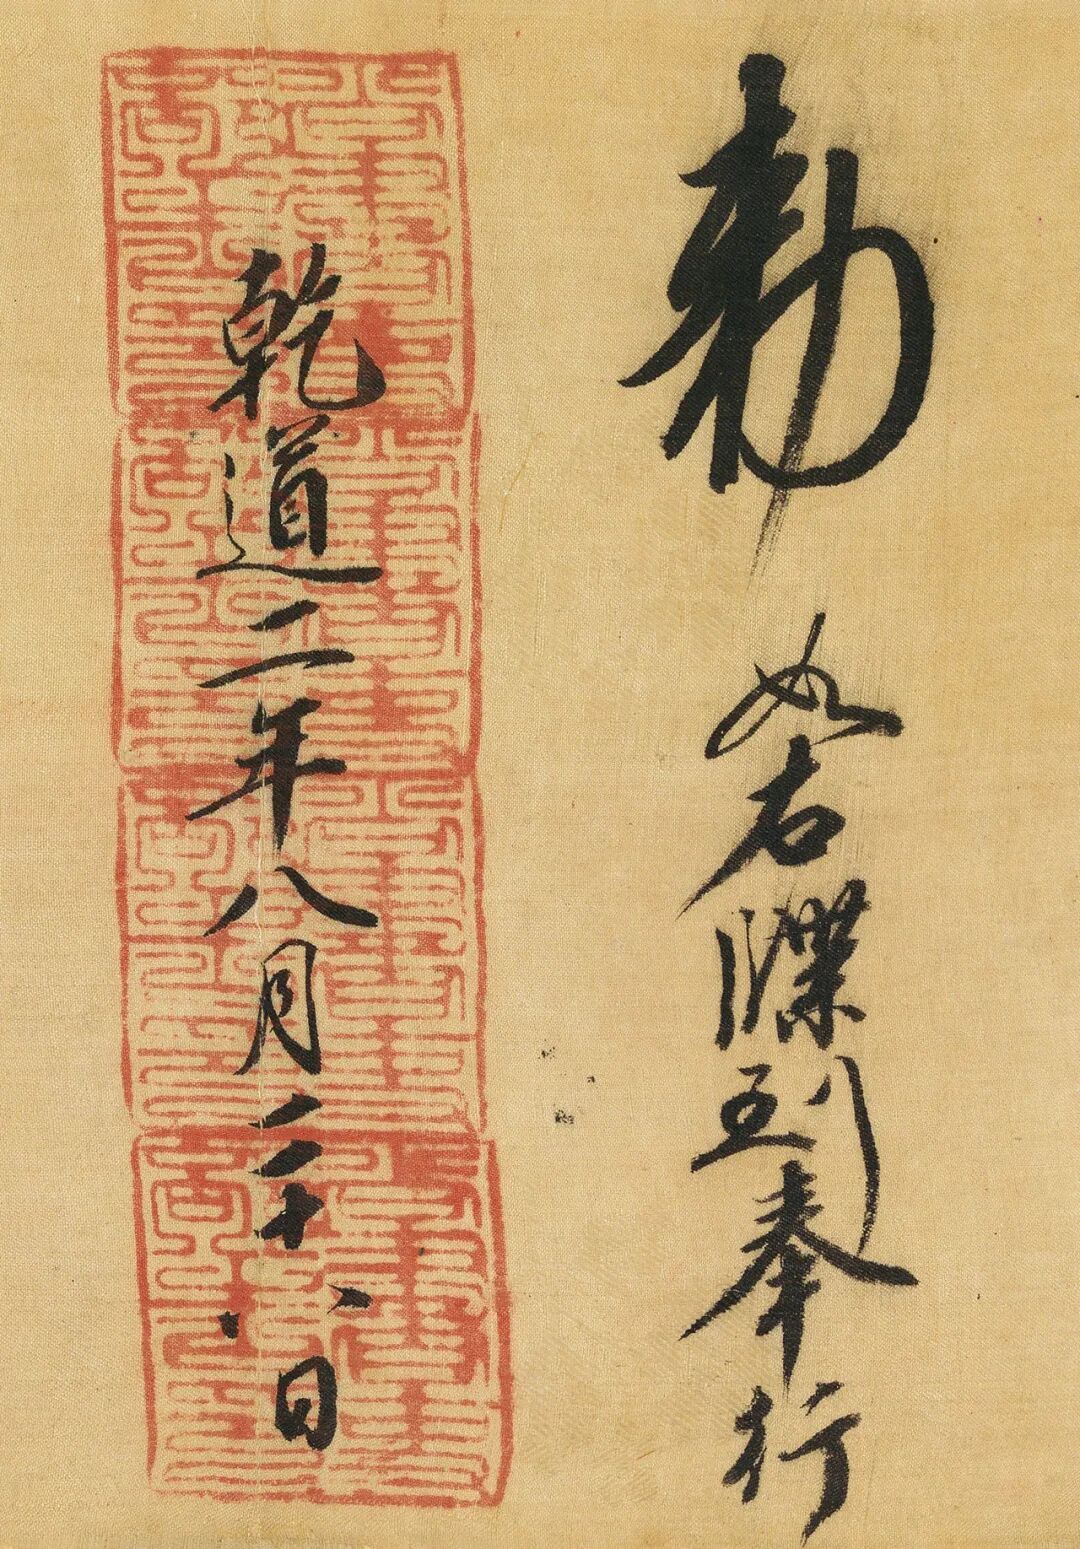 敕如右牒到奉行
乾道二年八月二十八日